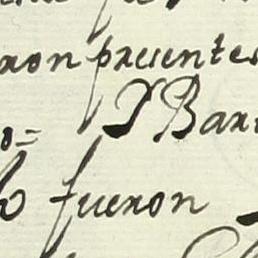 ron presentes
Y Bar
o=
o fueron